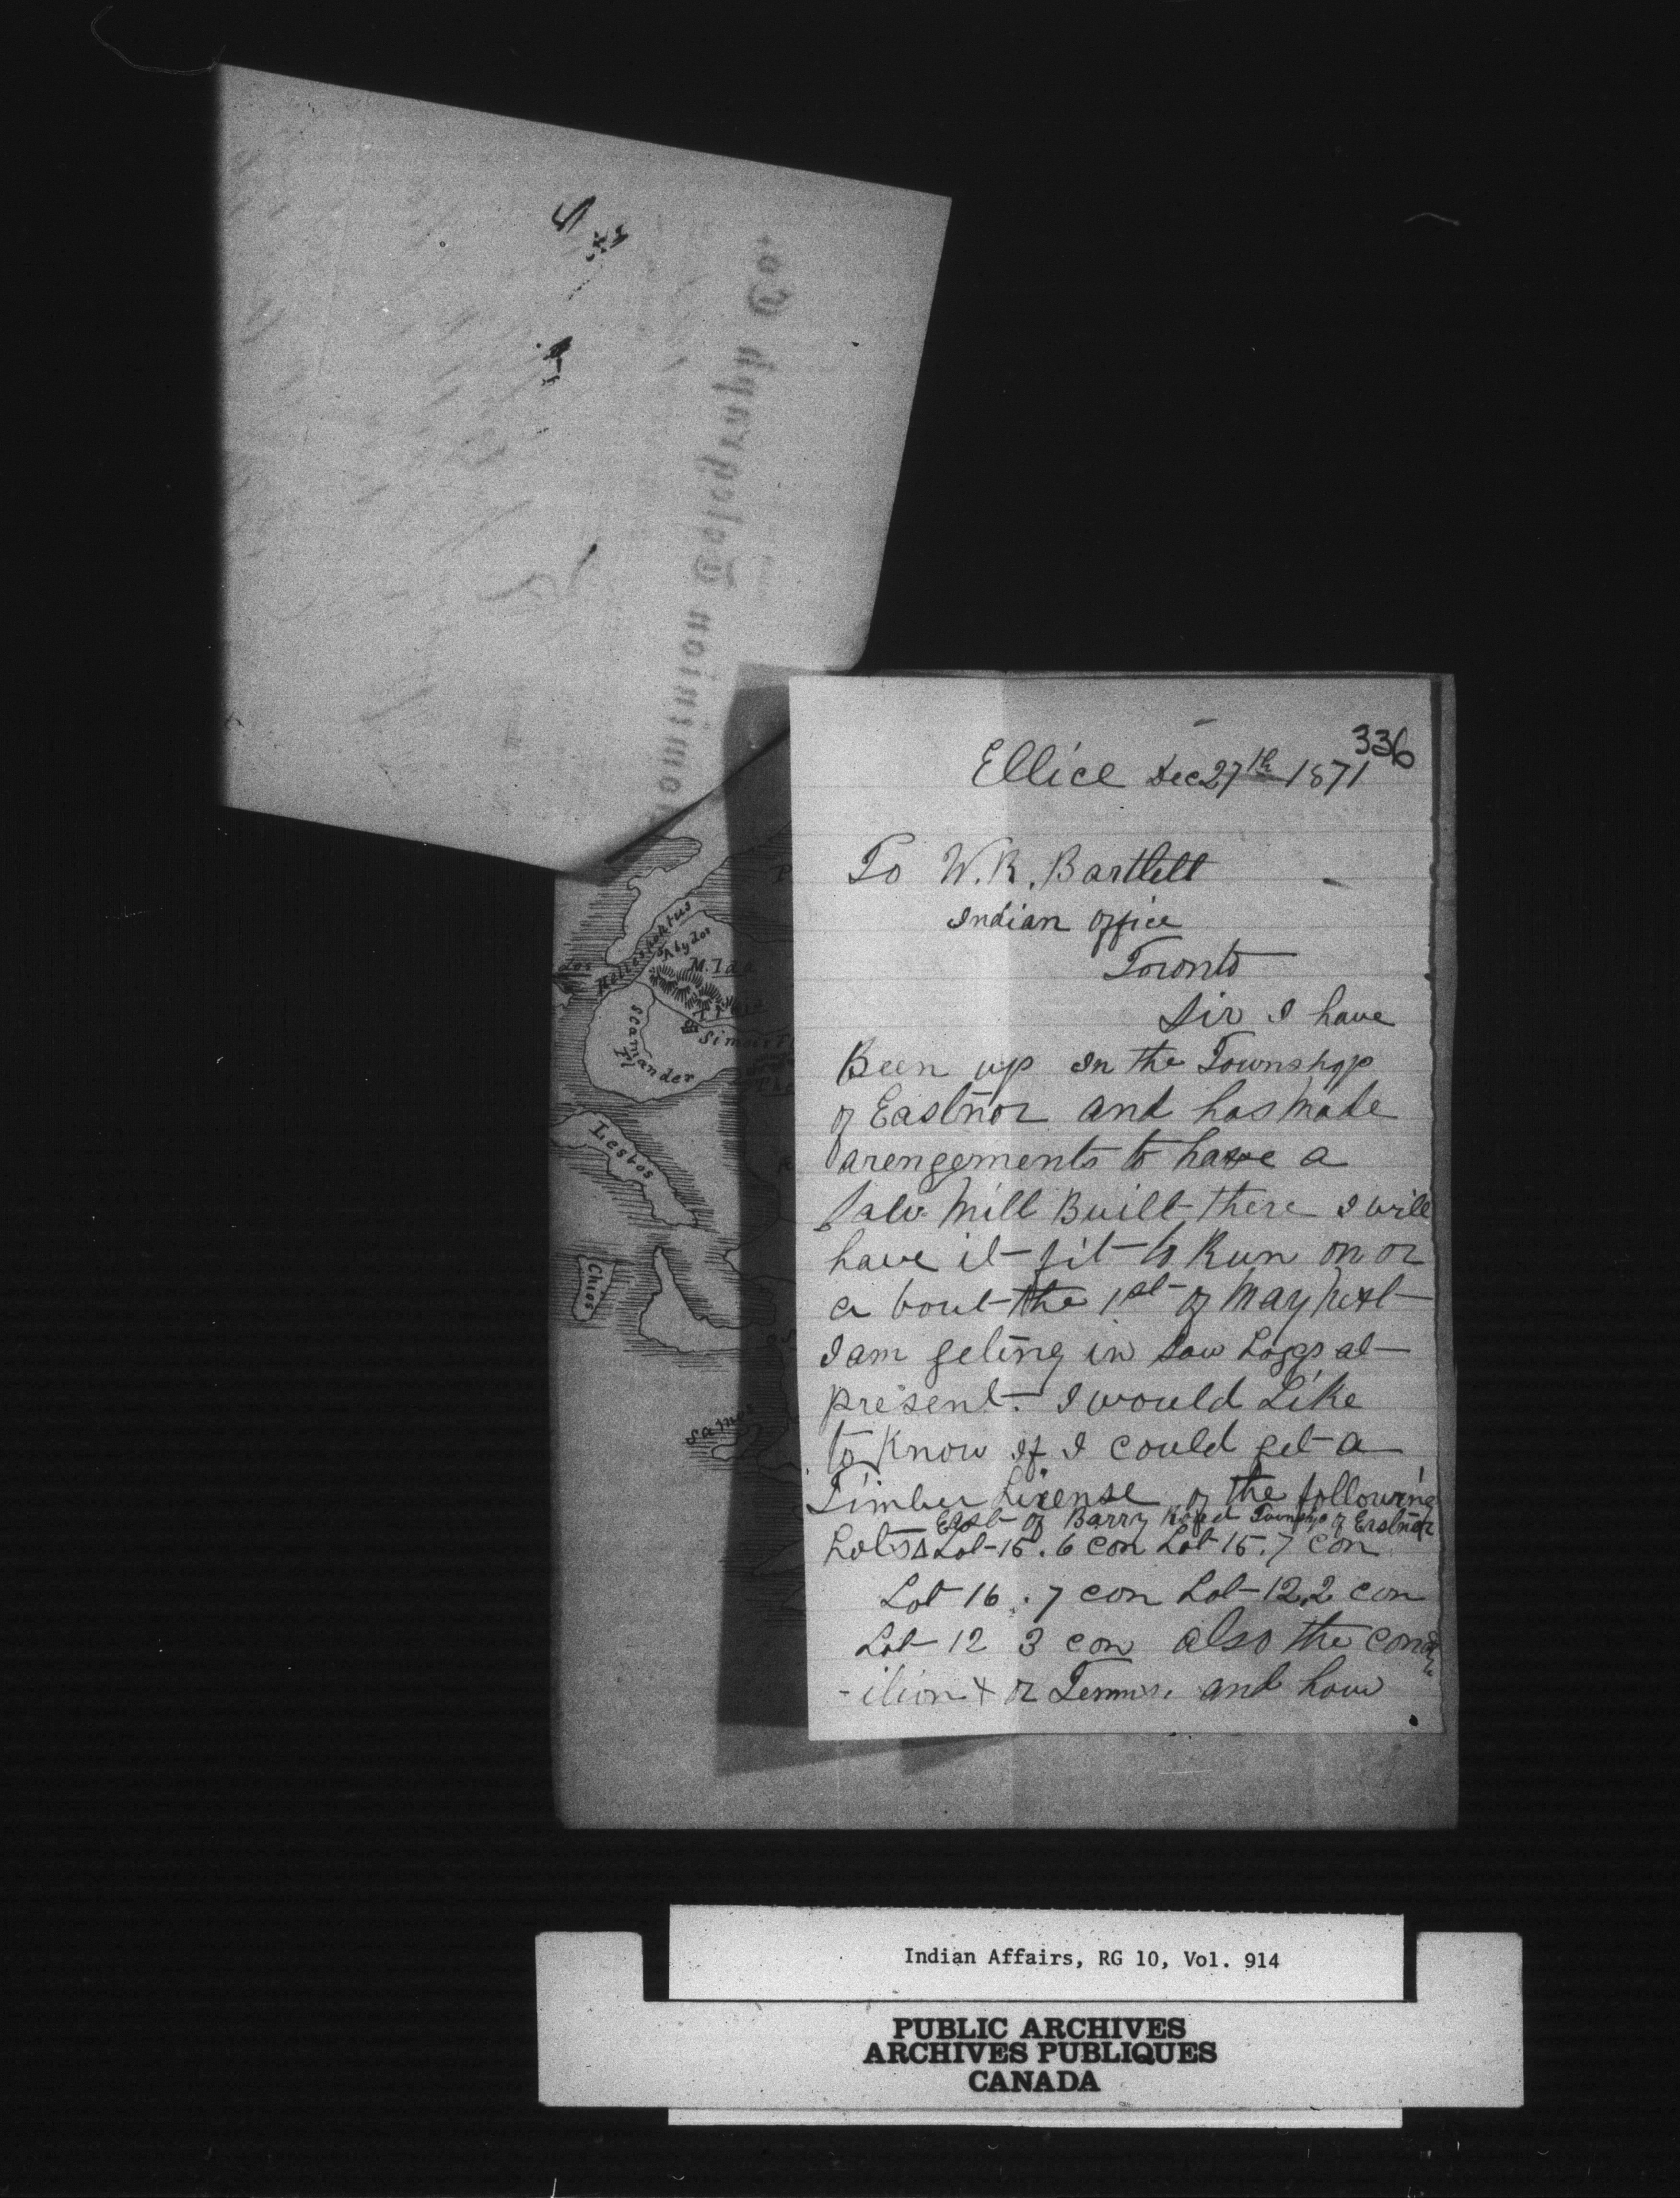 Dominion Telegraph Co.
336
Ellice Dec 27th 1871
To W. R. Bartlett
Indian office
Toronto
Sir I have
Been up in the Township
of Eastnor and has made
arengements to have a
Saw Mill Built there I will
have it fit to Run on or
a bout the 1st of May next
I am geting in Saw Loggs at
present. I would Like
to Know if I could get a
Timber License of the following
East of Barry Road Township of Eastnor
Lots Lot 15. 6 con Lot 15. 7 con
Lot 16. 7 con Lot 12. 2 con
Lot 12 3 con also the cond
-ition + or Terms. and how
Hellespontus
Abydos
M. Ida
Troja
Simois Fl
Scamander
Fl
Lesbos
Chios
Samos
Indian Affairs, RG 10, Vol. 914
PUBLIC ARCHIVES
ARCHIVES PUBLIQUES
CANADA